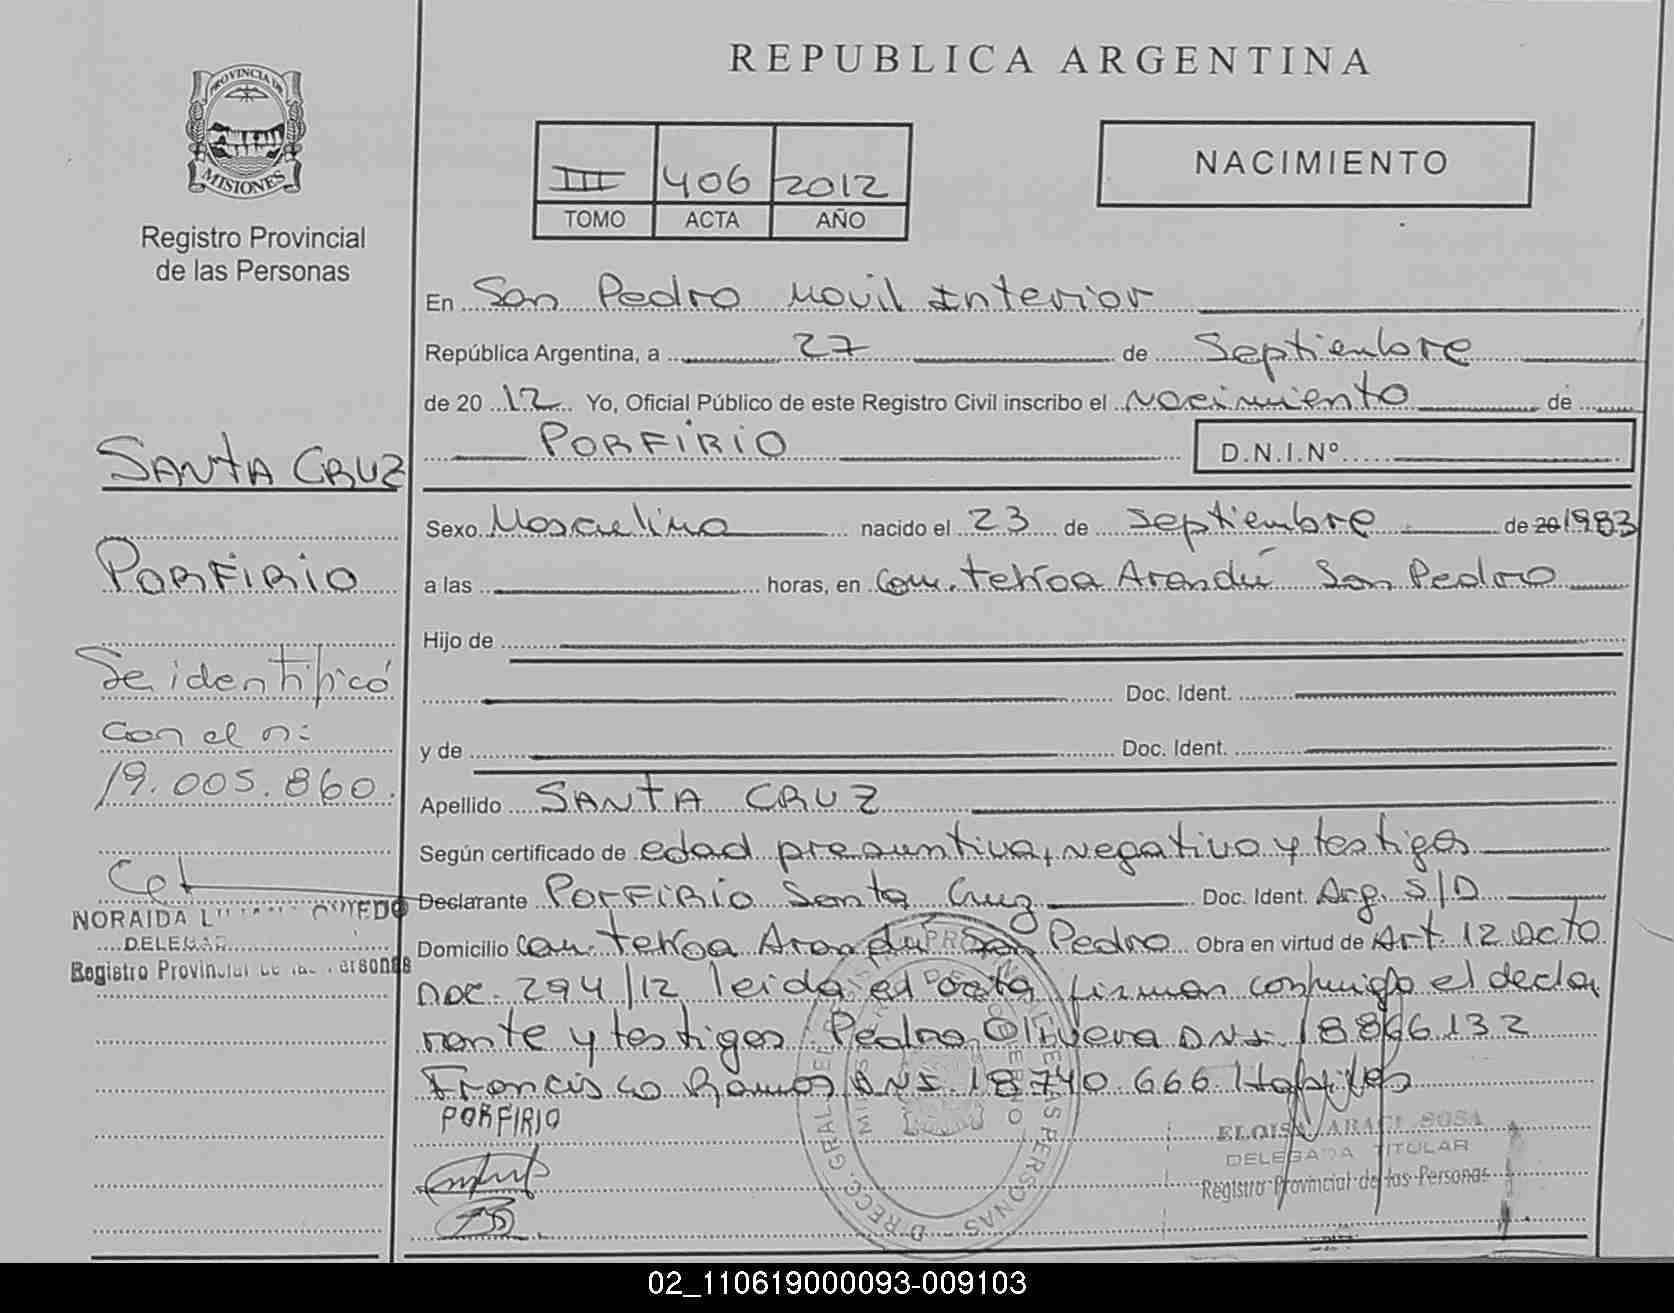 REPUBLICA ARGENTINA
PROVINCIA DE
MISIONES
Registro Provincial
de las Personas
III 406 2012
TOMO ACTA AÑO
NACIMIENTO
En San Pedro Movil Interior
República Argentina, a 27 de Septiembre
de 20 12 Yo, Oficial Público de este Registro Civil inscribo el Nacimiento de
PORFIRIO
D.N.I.Nº
SANTA CRUZ
PORFIRIO
Se identificó
con el n:
19.005.860.
NORAIDA
DELEGAD
Registro Provincial de las Personas
Sexo Masculino nacido el 23 de Septiembre de 20 1983
a las horas, en Com. Arandú San Pedro
Hijo de
Doc. Ident.
y de Doc. Ident.
Apellido SANTA CRUZ
Según certificado de edad presuntiva, negativo y testigos
Declarante PORFIRIO Santa Cruz Doc. Ident. Arg. S/D
Domicilio Com. Arandú San Pedro Obra en virtud de Art. 12 Dcto
Nac. 294/12 leida el acta firman conmigo el decla
rante y testigos Pedro Olivera DNI 18866.132
Francisco Ramos DNI 18740.666 Habiles
PORFIRIO
ELOISA ARACI SOSA
DELEGADA TITULAR
Registro Provincial de las Personas
02_110619000093-009103